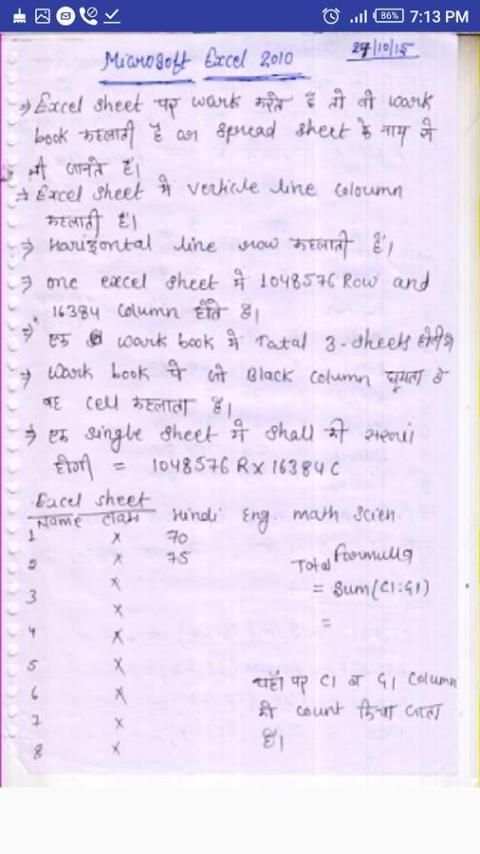 86% 7:13 PM
Microsoft Excel 2010
27/10/15
⇒ Excel sheet पर work करते हैं तो वो work
book कहलाती है या spread sheet के नाम से
भी जानते है।
⇒ Excel sheet में verticle line coloumn
कहलाती है।
⇒ Harizontal line row कहलाती है।
⇒ one excel sheet में 1048576 Row and
16384 column होते है।
⇒ एक work book में Total 3-sheets होती है
⇒ Work book पे जो Black column घूमता है
वह cell कहलाता है।
⇒ एक single sheet में shall की
होगी = 1048576 R X 16384 C
Excel sheet
Name class Hindi Eng math Scien
1 x 70
2 x 75
Total Formulla
3 x
= Sum(C1:G1)
x
=
4 x
5 x
यहाँ पर C1 व G1 Column
6 x
को count किया जाता
7 x
है।
8 x